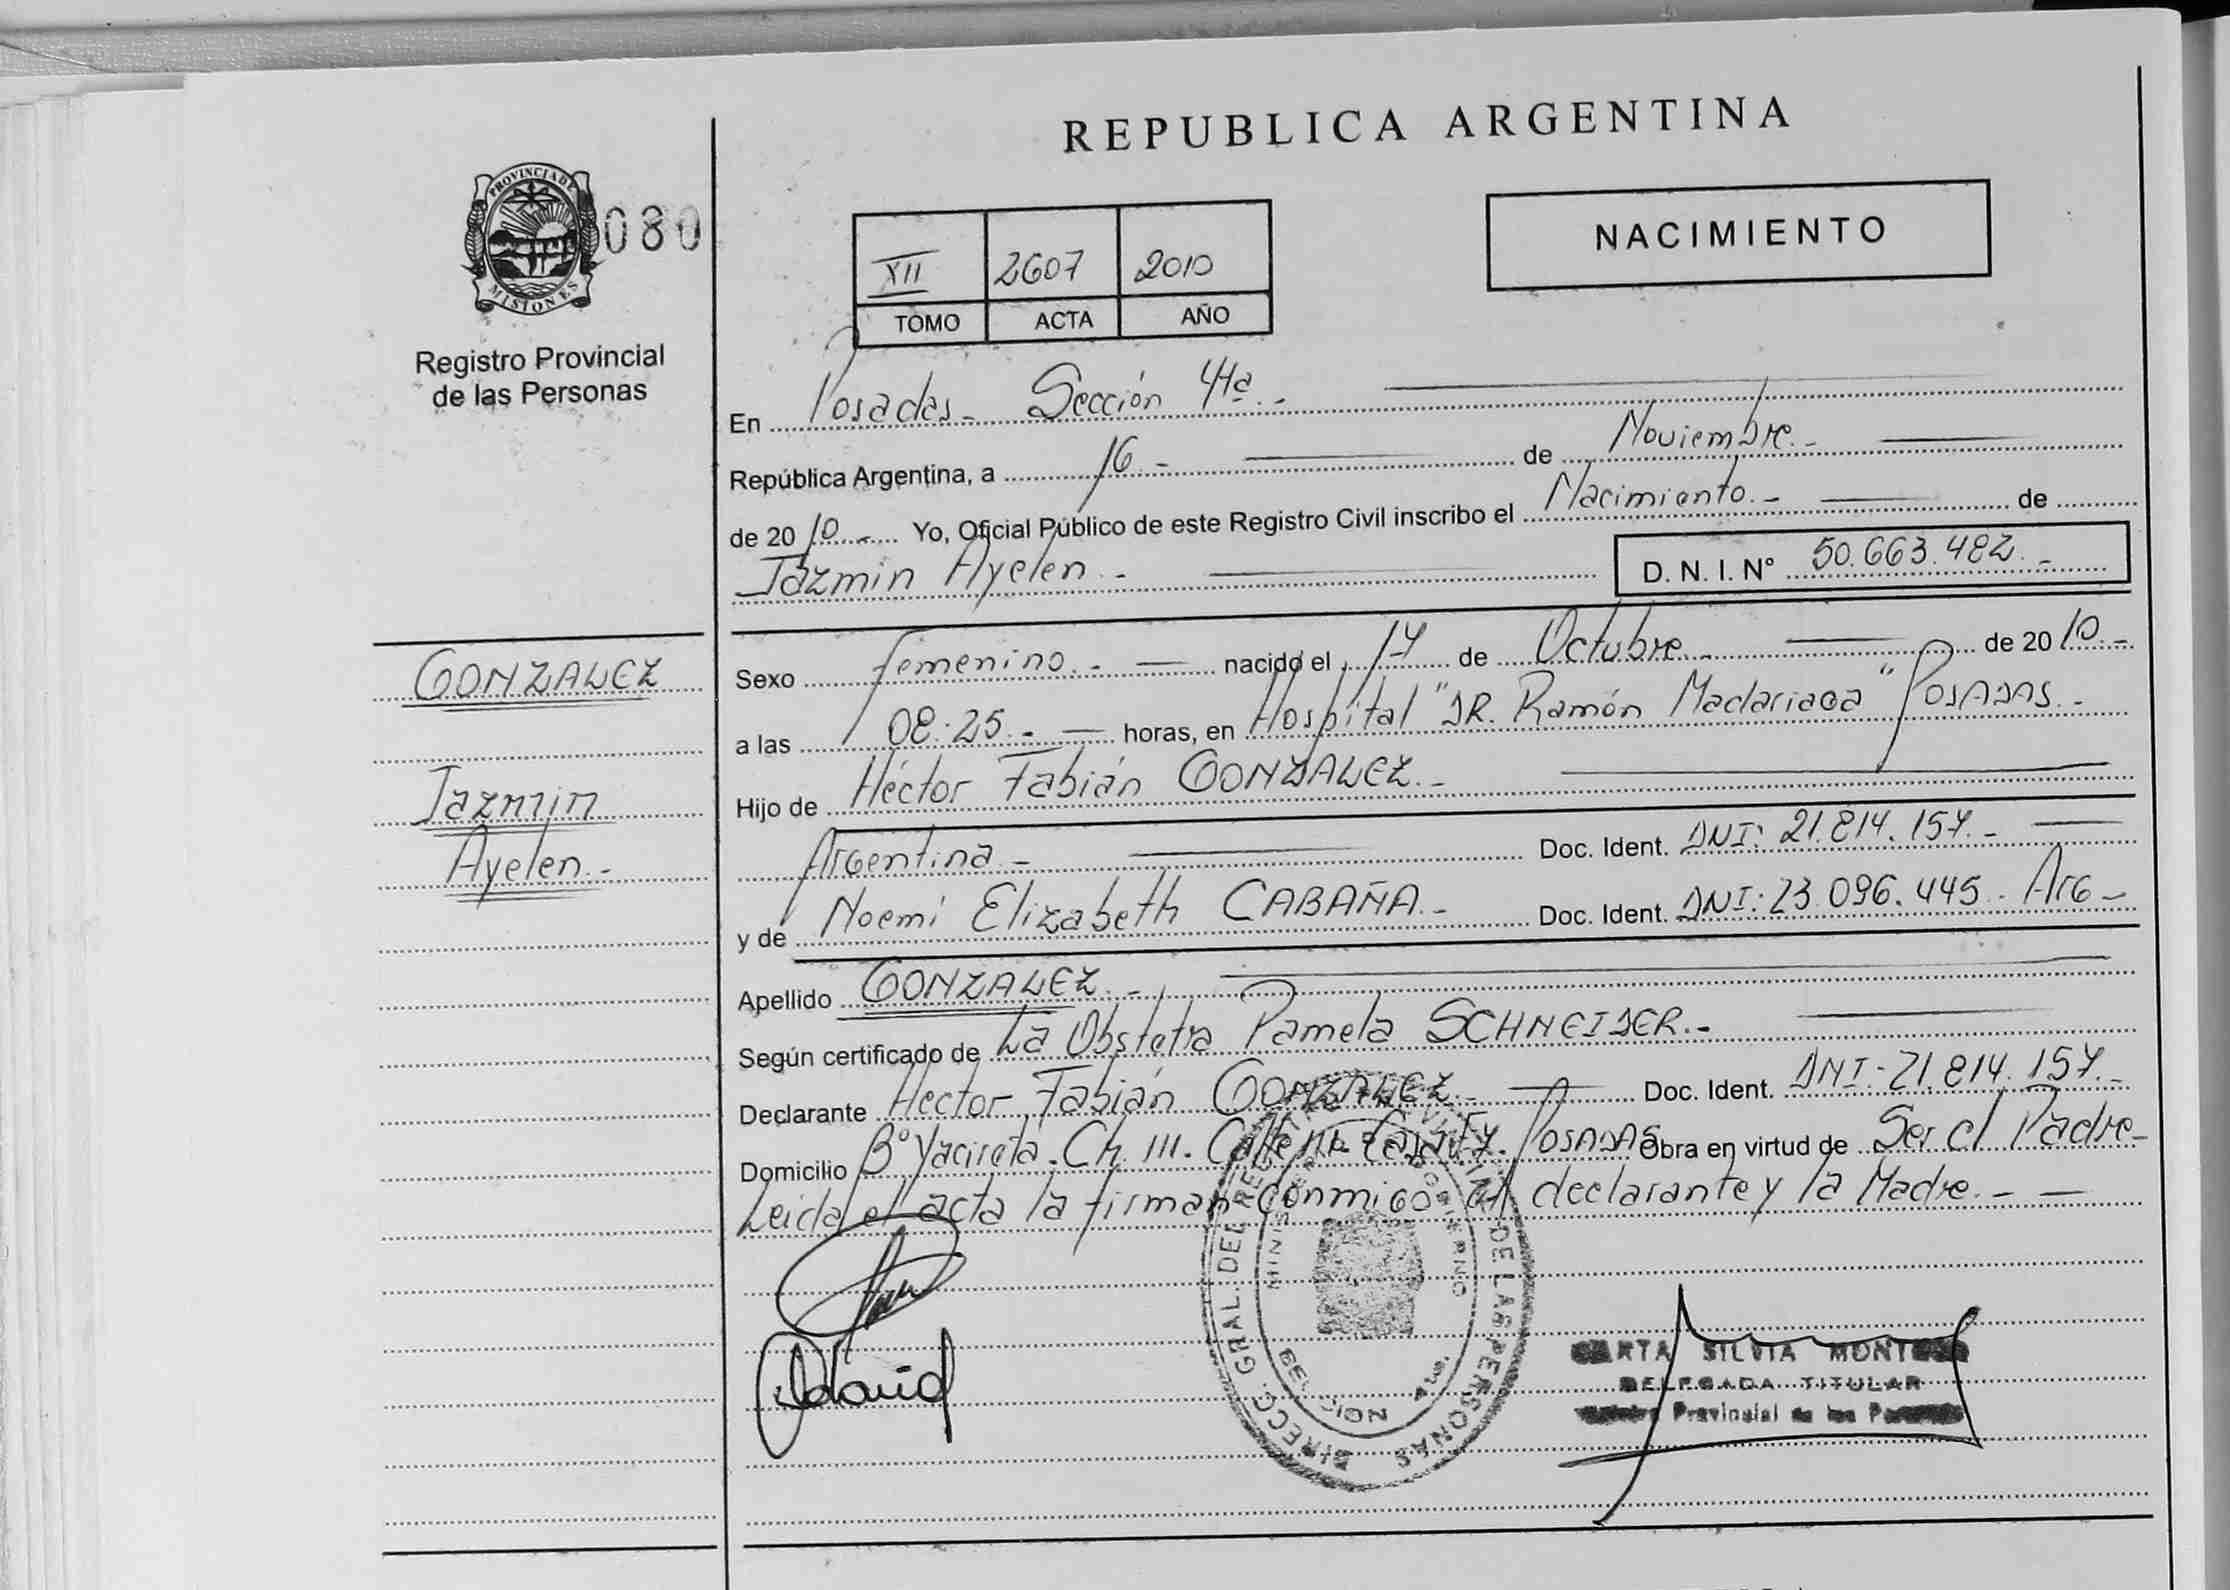 REPUBLICA ARGENTINA
PROVINCIA DE
MISIONES
080
Registro Provincial
de las Personas
NACIMIENTO
XII 2607 2010
TOMO ACTA AÑO
En Posadas - Sección 4ta.-
República Argentina, a 16.- de Noviembre.-
de 2010.- Yo, Oficial Público de este Registro Civil inscribo el Nacimiento.- de
Jazmin Ayelen.- D. N. I. N° 50.663.482.-
GONZALEZ
Jazmin
Ayelen.-
Sexo femenino.- nacido el 17 de Octubre.- de 2010.-
a las 08:25.- horas, en Hospital "DR. Ramón Madariaga" POSADAS.-
Hijo de Héctor Fabián GONZALEZ.-
Argentina.- Doc. Ident. DNI: 21.814.157.-
y de Noemi Elizabeth CABAÑA.- Doc. Ident. DNI: 23.096.445.- Arg-
Apellido GONZALEZ.-
Según certificado de La Obstetra Pamela SCHNEIDER.-
Declarante Hector Fabián GONZALEZ.- Doc. Ident. DNI.- 21.814.157.-
Domicilio B° Yacireta. Ch. 111. POSADAS Obra en virtud de Ser el Padre-
Leida el acta la firman conmigo el declarante y la Madre.-
DIRECC. GRAL. DEL REG. DE LAS PERSONAS
GOBIERNO
SILVIA
DELEGADA TITULAR
Provincial de las